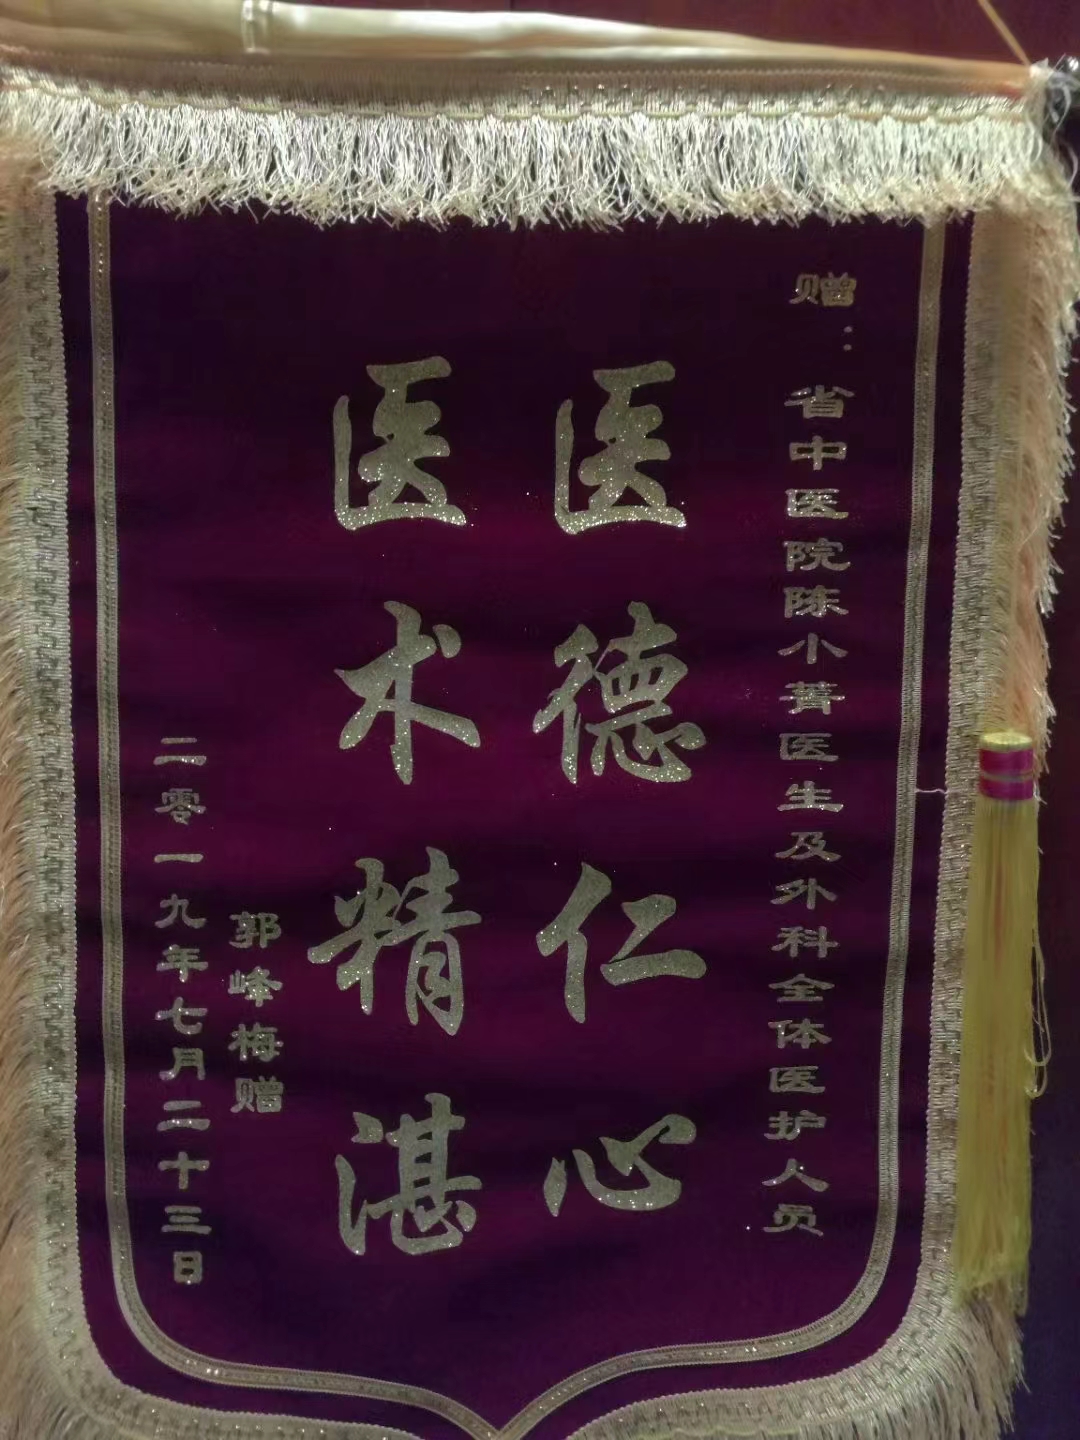 赠：省中医院陈小菁医生及外科全体医护人员
医德仁心
医术精湛
郭峰梅赠
二零一九年七月二十三日